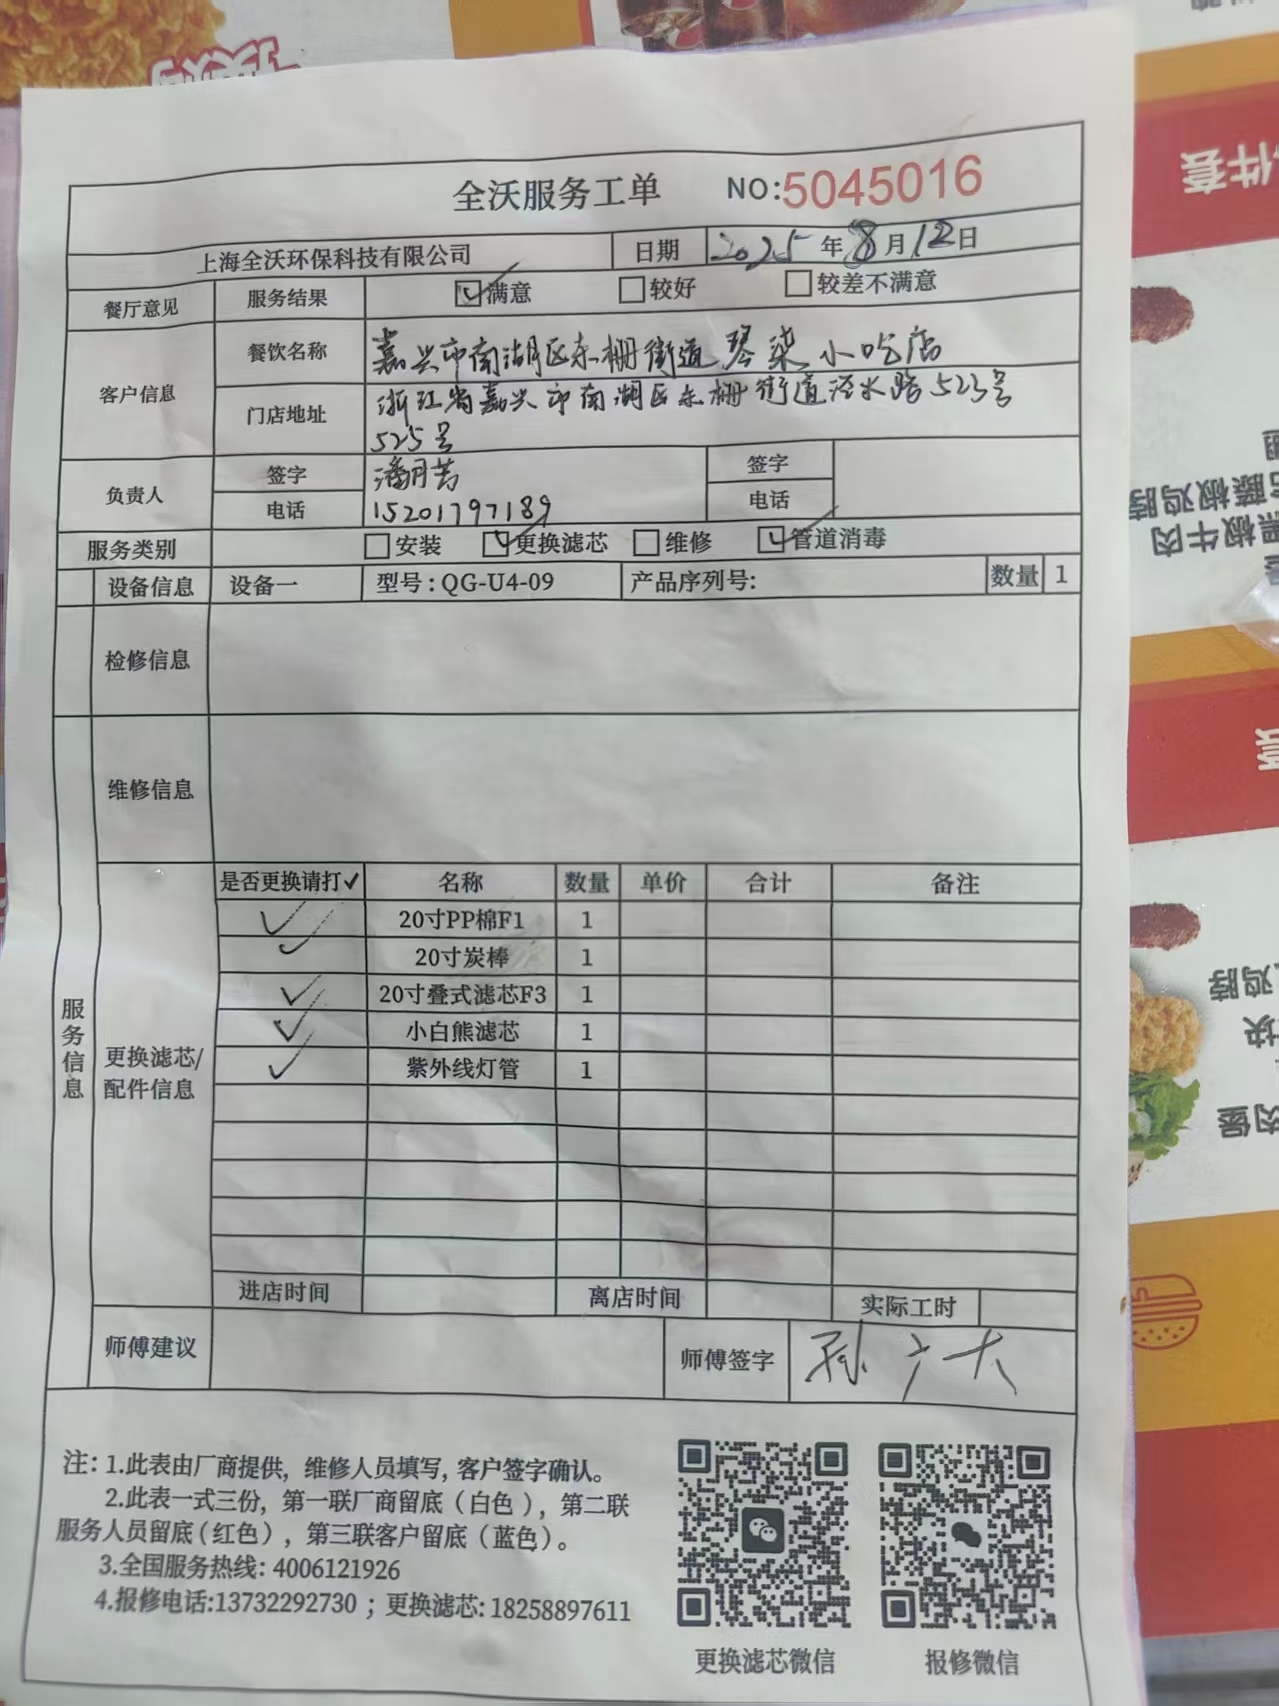 全沃服务工单 NO:5045016
上海全沃环保科技有限公司 日期 2025年8月12日
餐厅意见 服务结果 满意 较好 较差不满意
客户信息 餐饮名称 嘉兴市南湖区东栅街道琴柒小吃店
门店地址 浙江省嘉兴市南湖区东栅街道泾水路523号
525号
负责人 签字 潘月芳 签字
电话 15201797189 电话
服务类别 安装 更换滤芯 维修 管道消毒
设备信息 设备一 型号:QG-U4-09 产品序列号: 数量 1
检修信息
维修信息
服务信息
更换滤芯/
配件信息
是否更换请打✓ 名称 数量 单价 合计 备注
✓ 20寸PP棉F1 1
✓ 20寸炭棒 1
✓ 20寸叠式滤芯F3 1
✓ 小白熊滤芯 1
✓ 紫外线灯管 1
进店时间 离店时间 实际工时
师傅建议 师傅签字 孙广大
注:1.此表由厂商提供,维修人员填写,客户签字确认。
2.此表一式三份,第一联厂商留底(白色),第二联
服务人员留底(红色),第三联客户留底(蓝色)。
3.全国服务热线:4006121926
4.报修电话:13732292730;更换滤芯:18258897611
更换滤芯微信 报修微信
件套
藤椒鸡脖
椒牛肉
鸡脖
块
肉堡